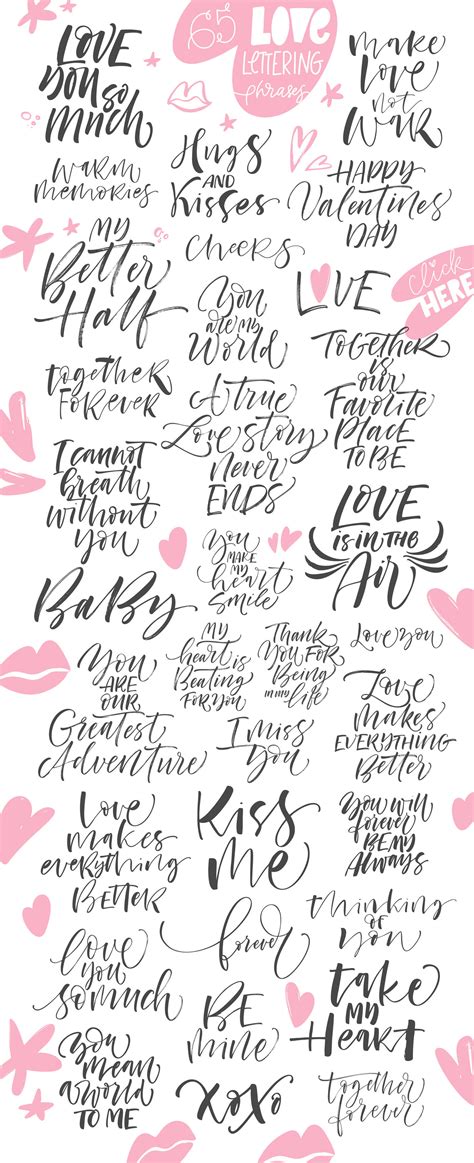 65 LOVE
LETTERING
phrases
LOVE
YOU SO
MUCH
make
love
not
WAR
Hugs
AND
Kisses
WARM
MEMORIES
HAPPY
Valentines
DAY
MY
Better
Half
CHEERS
LOVE
click
HERE
You
ARE MY
World
together
FOREVER
TOGETHER
is
our
Favorite
PLACE
TO BE
A TRUE
Love story
NEVER
ENDS
I cannot
breath
without
you
LOVE
IS IN THE
AIR
You
MAKE
MY
heart
smile
BABY
My
heart is
Beating
FOR YOU
Thank
YOU FOR
Being
in my
life
Love you
You
ARE
OUR
Greatest
Adventure
I miss
You
Love
makes
EVERYTHING
Better
Love
makes
everything
BETTER
Kiss
me
You will
forever
BE MY
Always
forever
thinking
OF
YOU
love
you
so much
BE
mine
take
MY
Heart
You
mean
a world
TO ME
XOXO
together
forever